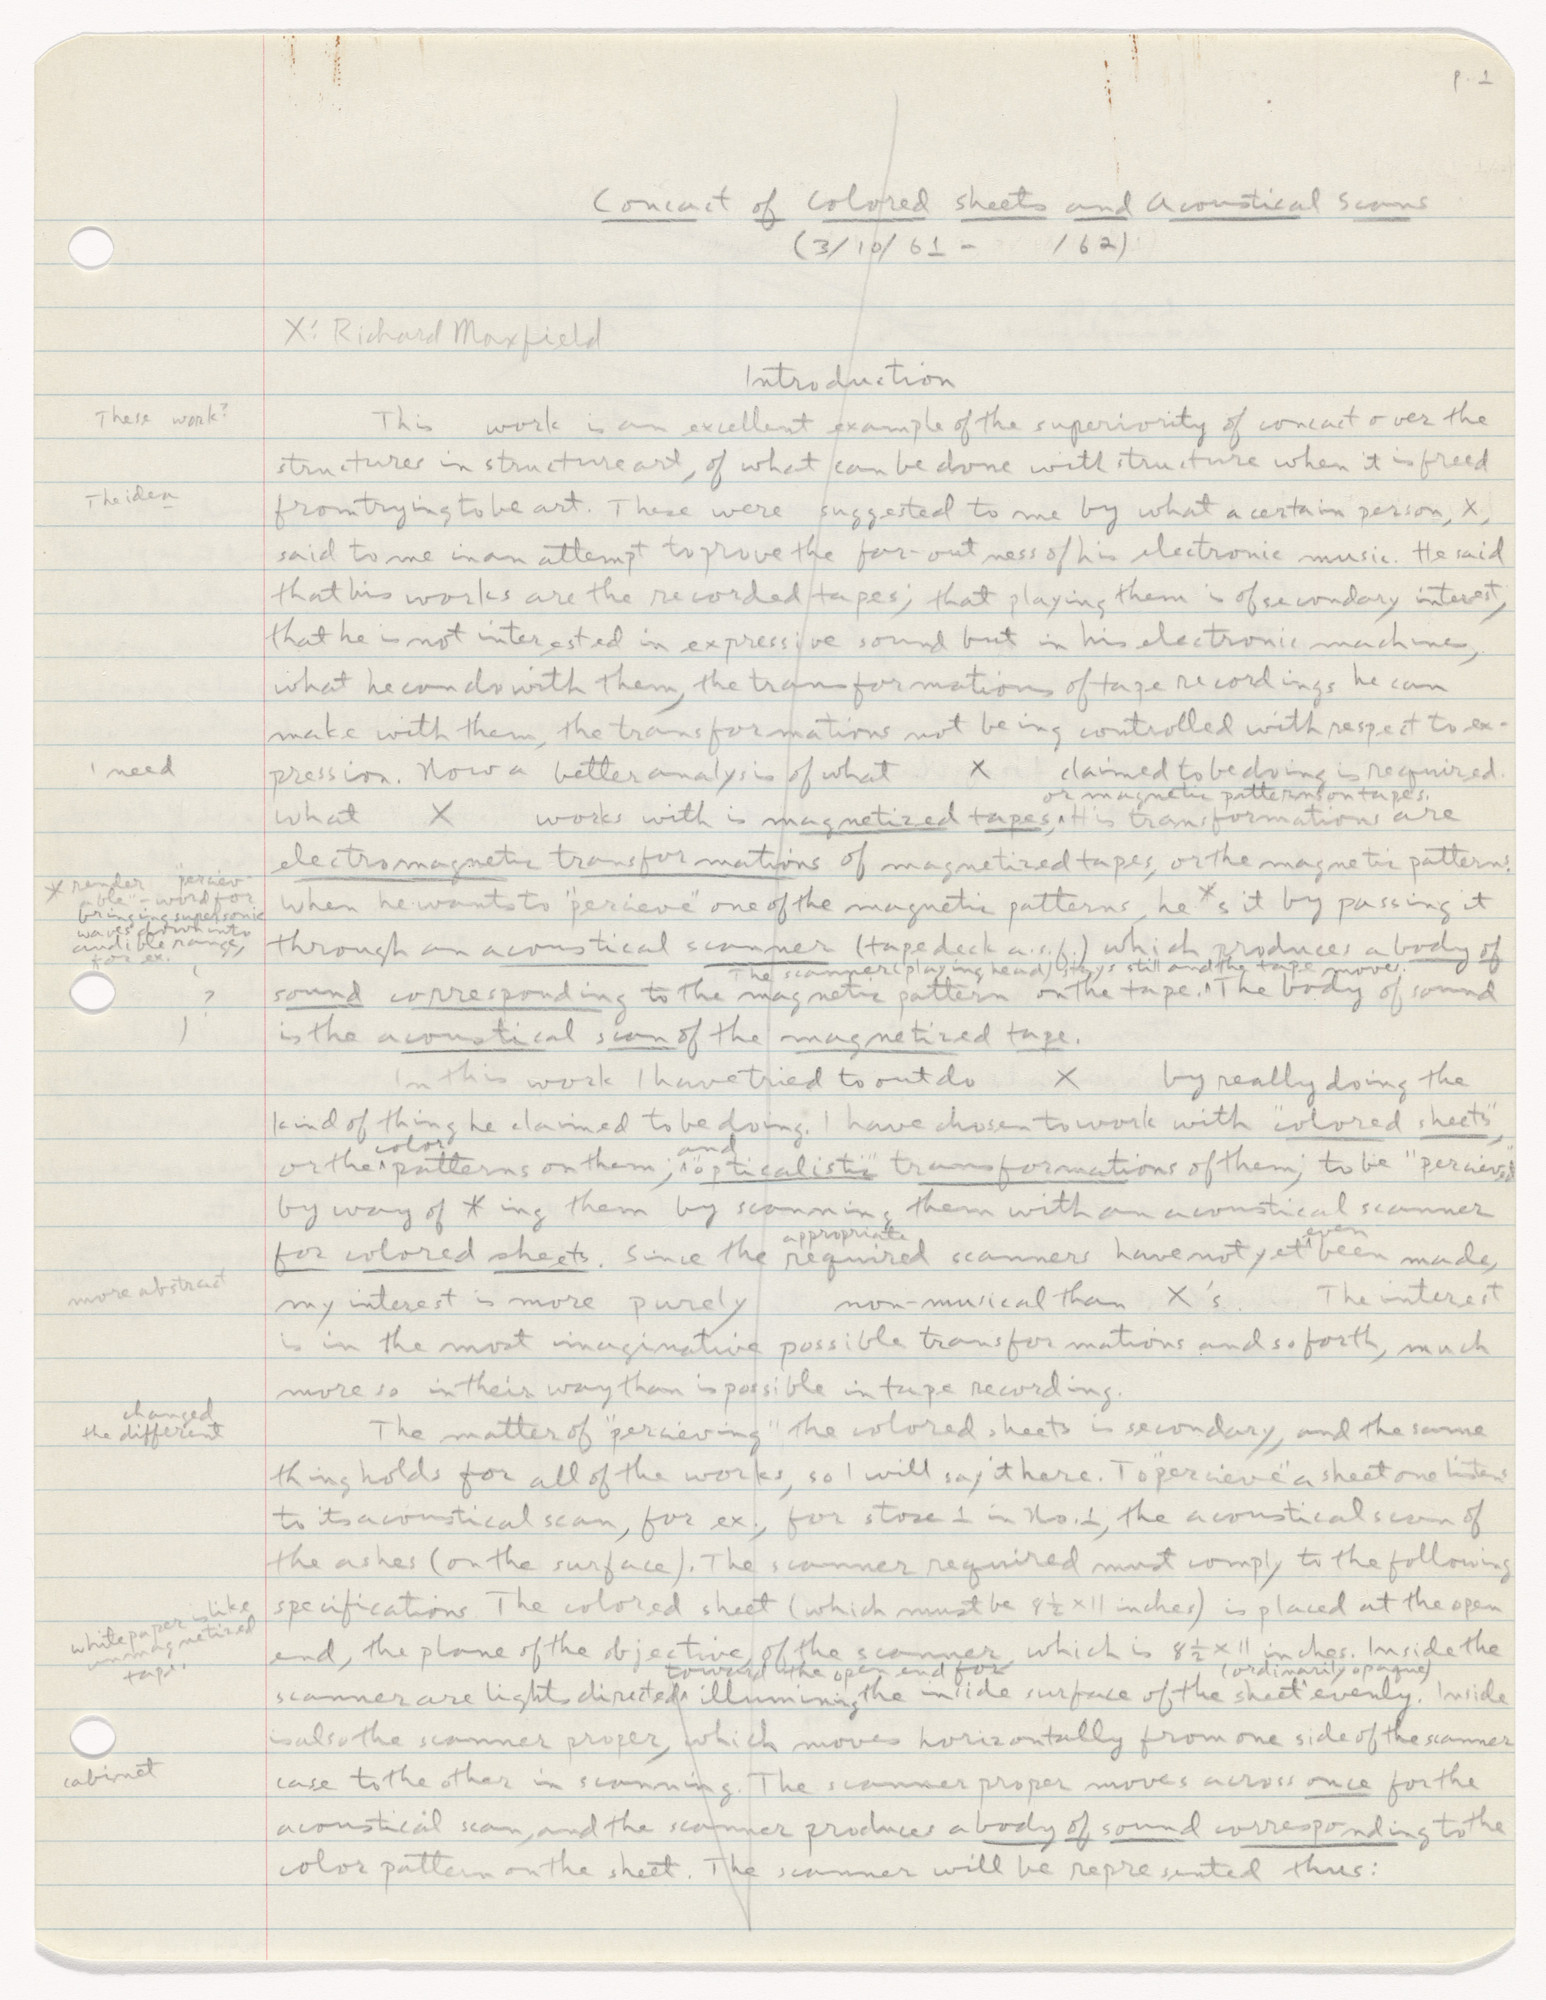 p. 1
Concact of Colored Sheets and Acoustical Scans
(3/10/61 - /62)
X: Richard Maxfield
Introduction
These work?
This work is an excellent example of the superiority of concact over the
structures in structure art, of what can be done with structure when it is freed
The idea
from trying to be art. These were suggested to me by what a certain person, X,
said to me in an attempt to prove the far-outness of his electronic music. He said
that his works are the recorded tapes; that playing them is of secondary interest,
that he is not interested in expressive sound but in his electronic machines,
what he can do with them, the transformations of tape recordings he can
make with them, the transformations not being controlled with respect to ex-
I need
pression. Now a better analysis of what X claimed to be doing is required.
or magnetic patterns on tapes.
what X works with is magnetized tapes, His transformations are
electromagnetic transformations of magnetized tapes, or the magnetic patterns.
* render "perciev-
able" - word for
bringing supersonic
waves down into
audible range,
for ex.
When he wants to "percieve" one of the magnetic patterns, he *s it by passing it
through an acoustical scanner (tape deck a.s.f.) which produces a body of
The scanner (playing head) stays still and the tape moves.
sound corresponding to the magnetic pattern on the tape. The body of sound
?
is the acoustical scan of the magnetized tape.
In this work I have tried to outdo X by really doing the
kind of thing he claimed to be doing. I have chosen to work with "colored sheets",
color and
or the patterns on them; "opticalistic" transformations of them; to be "percieved"
by way of *ing them by scanning them with an acoustical scanner
appropriate even
for colored sheets. Since the required scanners have not yet been made,
more abstract
my interest is more purely non-musical than X's. The interest
is in the most imaginative possible transformations and so forth, much
more so in their way than is possible in tape recording.
changed
the different
The matter of "percieving" the colored sheets is secondary, and the same
thing holds for all of the works, so I will say it here. To "percieve" a sheet one listens
to its acoustical scan, for ex., for stose 1 in No. 1, the acoustical scan of
the ashes (on the surface). The scanner required must comply to the following
specifications. The colored sheet (which must be 8½ × 11 inches) is placed at the open
white paper is like
unmagnetized
tape.
end, the plane of the objective, of the scanner, which is 8½ × 11 inches. Inside the
toward the open end for (ordinarily opaque)
scanner are lights directed illumining the inside surface of the sheet evenly. Inside
is also the scanner proper, which moves horizontally from one side of the scanner
cabinet
case to the other in scanning. The scanner proper moves across once for the
acoustical scan, and the scanner produces a body of sound corresponding to the
color pattern on the sheet. The scanner will be represented thus: